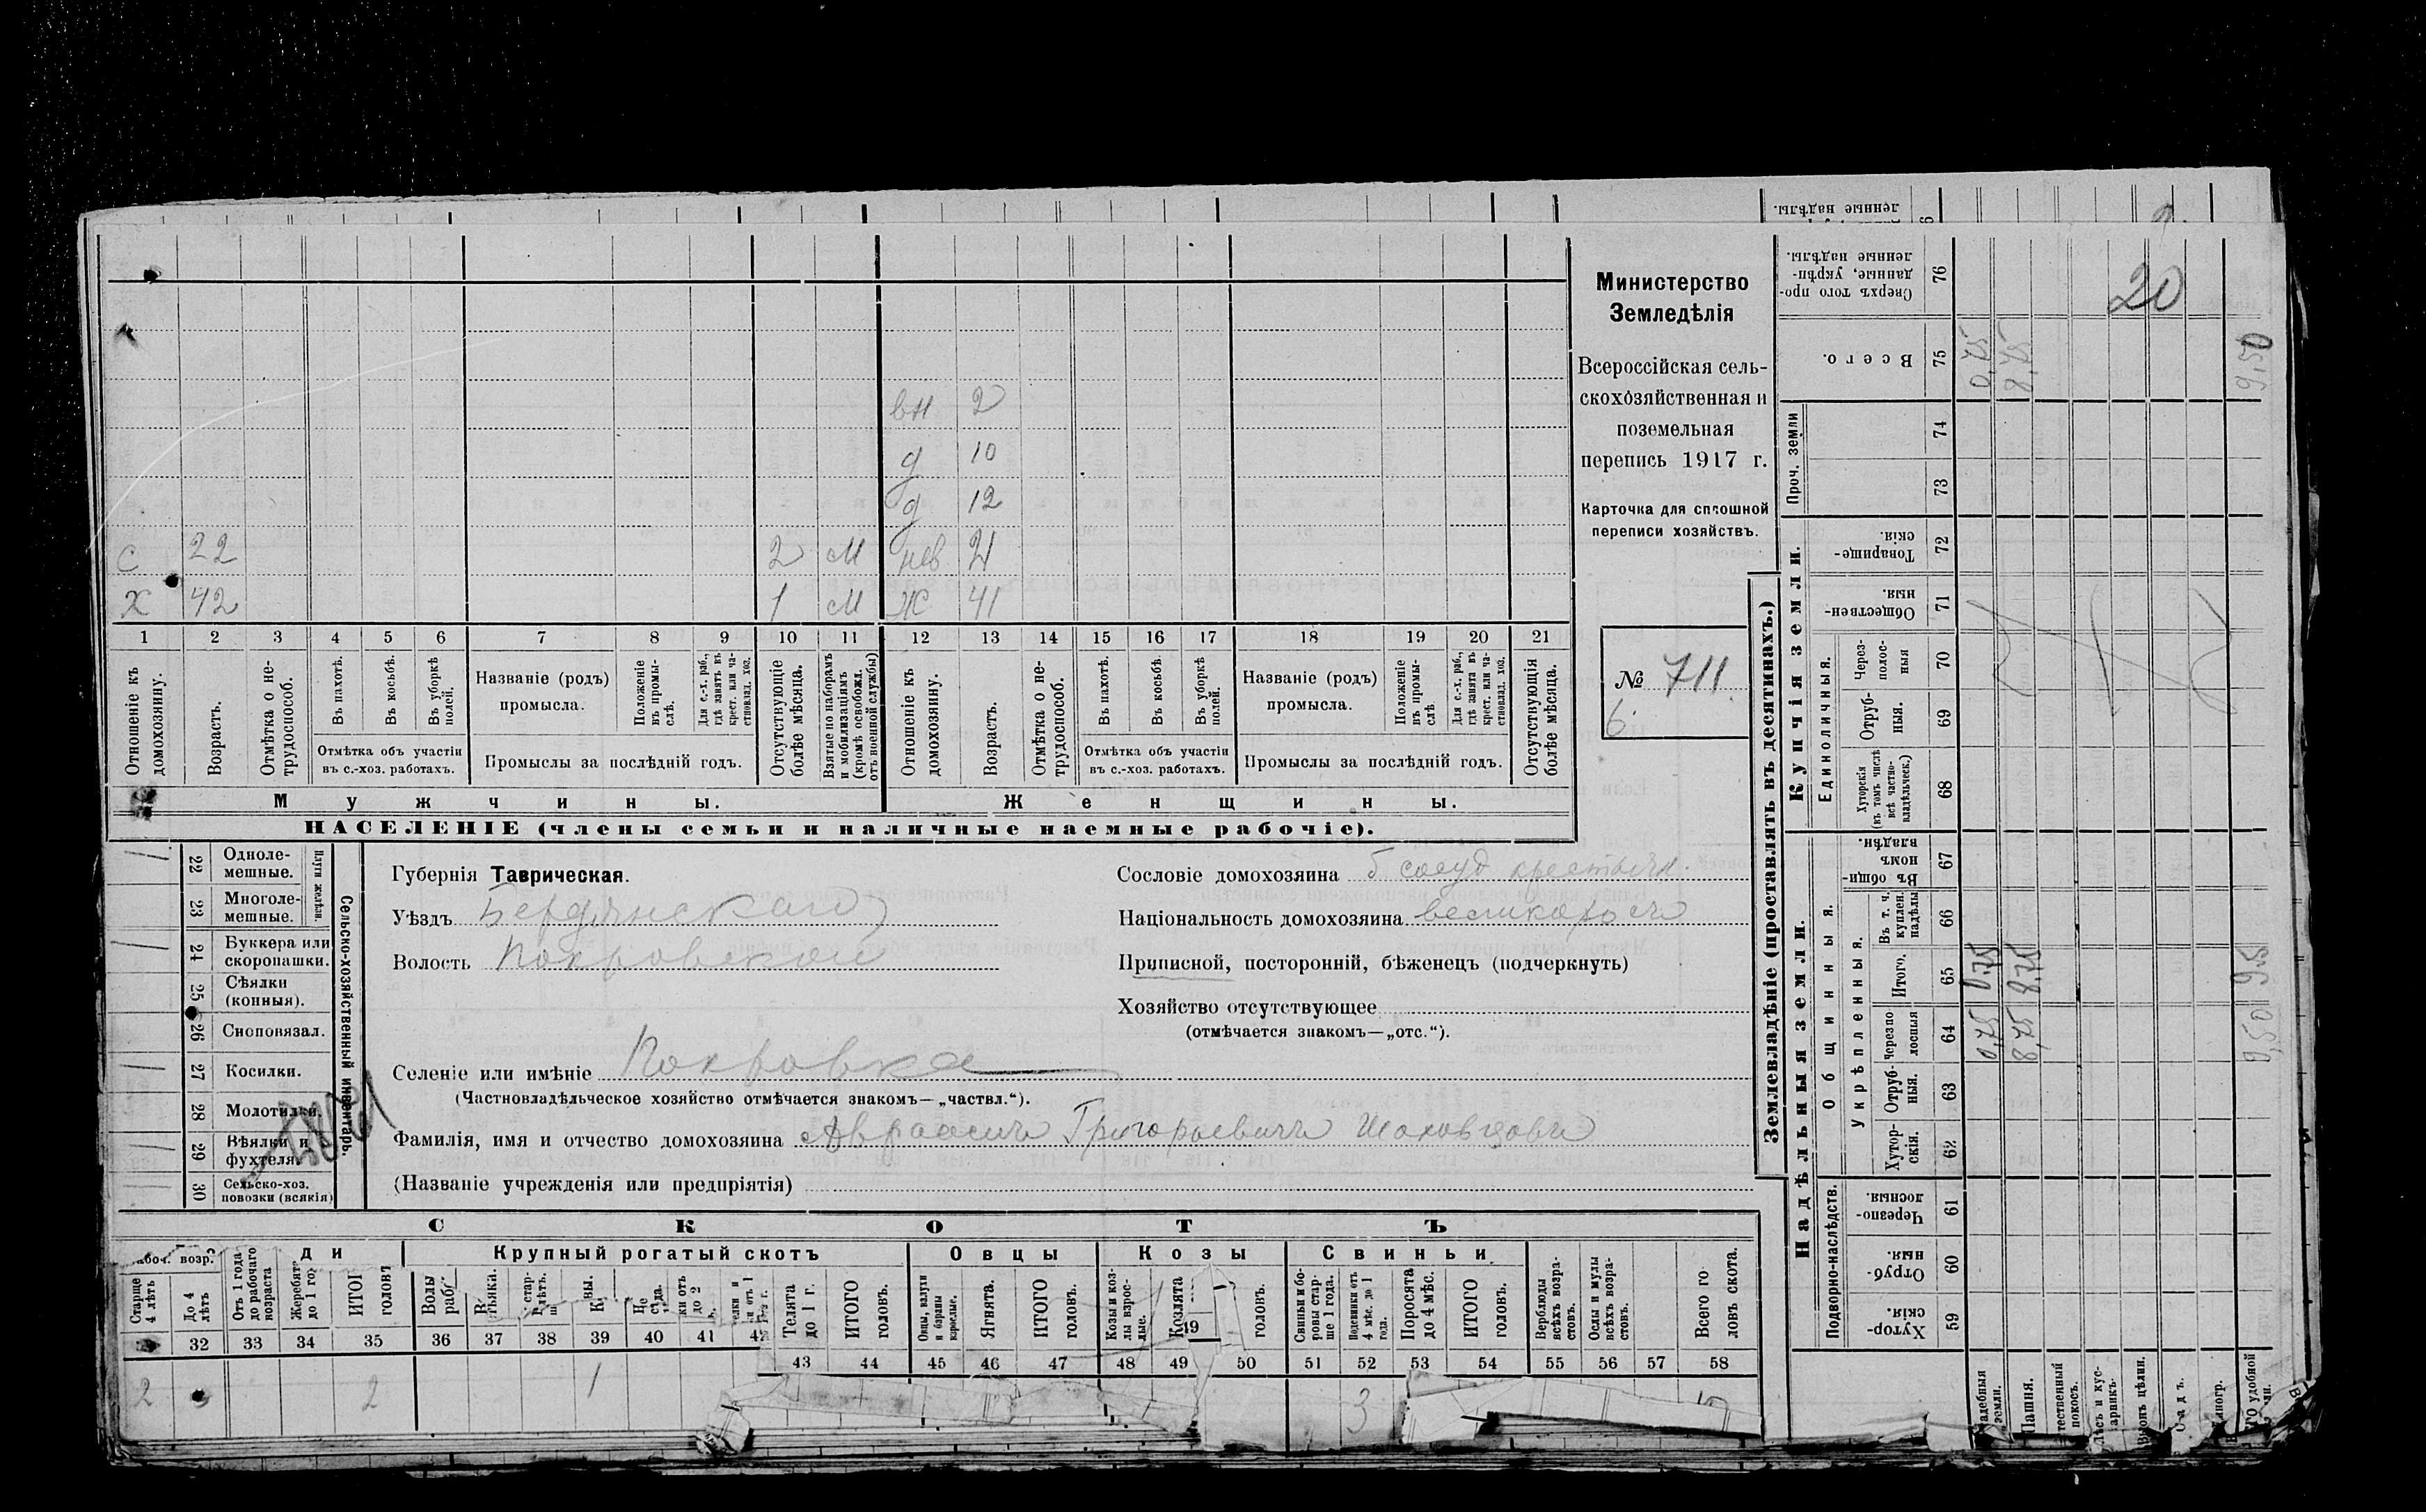 ленные надѣлы.
Министерство
Земледѣлія
Всероссійская сель-
скохозяйственная и
поземельная
перепись 1917 г.
Карточка для сплошной
переписи хозяйствъ.
№ 711.
6.
вн 2
д 10
д 12
с 22 2 м нев 21
х 42 1 м ж 41
1 2 3 4 5 6 7 8 9 10 11 12 13 14 15 16 17 18 19 20 21
Отношеніе къ домохозяину.
Возрастъ.
Отмѣтка о не-трудоспособ.
Въ пахотѣ.
Въ косьбѣ.
Въ уборкѣ полей.
Отмѣтка объ участіи
въ с.-хоз. работахъ.
Названіе (родъ)
промысла.
Положеніе въ промы-слѣ.
Для с.-х. раб., гдѣ занятъ въ крест. или ча-стновлад. хоз.
Промыслы за послѣдній годъ.
Отсутствующіе болѣе мѣсяца.
Взятые по наборамъ и мобилизаціямъ (кромѣ освобожд. отъ военной службы)
Отношеніе къ домохозяину.
Возрастъ.
Отмѣтка о не-трудоспособ.
Въ пахотѣ.
Въ косьбѣ.
Въ уборкѣ полей.
Отмѣтка объ участіи
въ с.-хоз. работахъ.
Названіе (родъ)
промысла.
Положеніе въ промы-слѣ.
Для с.-х. раб., гдѣ занята въ крест. или ча-стновлад. хоз.
Промыслы за послѣдній годъ.
Отсутствующія болѣе мѣсяца.
Мужчины.
Женщины.
НАСЕЛЕНІЕ (члены семьи и наличные наемные рабочіе).
Сельско-хозяйственный инвентарь.
Плуги желѣзн.
22 Одноле-
мешные.
23 Многоле-
мешные.
24 Буккера или
скоропашки.
25 Сѣялки
(конныя).
26 Сноповязал.
27 Косилки.
28 Молотилки.
29 Вѣялки и
фухтеля.
30 Сельско-хоз.
повозки (всякія)
Губернія Таврическая.
Уѣздъ Бердянскаго
Волость Покровской
Селеніе или имѣніе Покровка
(Частновладѣльческое хозяйство отмѣчается знакомъ—„частвл.“).
Фамилія, имя и отчество домохозяина Авраамъ Григорьевичъ Шаховцовъ
(Названіе учрежденія или предпріятія)
Сословіе домохозяина б. госуд. крестьян.
Національность домохозяина великороссъ
Приписной, посторонній, бѣженецъ (подчеркнуть)
Хозяйство отсутствующее
(отмѣчается знакомъ—„отс.“).
СКОТЪ
Крупный рогатый скотъ Овцы Козы Свиньи
Старше 4 лѣтъ
До 4 лѣтъ
Отъ 1 года до рабочаго возраста
Телята до 1 г.
ИТОГО головъ.
Овцы, валухи и бараны взрослые.
Ягнята.
ИТОГО головъ.
Козы и коз-лы взрос-лые.
Козлята
головъ.
Свиньи и бо-ровы стар-ше 1 года.
Подсвинки отъ 4 мѣс. до 1 года.
Поросята до 4 мѣс.
ИТОГО головъ.
Верблюды всѣхъ возра-стовъ.
Ослы и мулы всѣхъ возра-стовъ.
Всего го ловъ скота.
32 33 34 35 36 37 38 39 40 41
43 44 45 46 47 48 49 50 51 52 53 54 55 56 57 58
2 2 1 3
Землевладѣніе (проставлять въ десятинахъ.)
Сверхъ того про-данные, укрѣп-ленные надѣлы. 76 20
Всего. 75 0,75 8,75 9,50
Проч. земли 74
73
Купчія земли.
Товарище-скія. 72
Обществен-ныя. 71
Единоличныя.
Через-полос-ныя 70
Отруб-ныя. 69
Хуторскія (въ томъ числѣ всѣ частно-владѣльческ.) 68
Надѣльныя земли.
Въ общин-номъ владѣн. 67
Общинныя.
Укрѣпленныя.
Въ т. ч. куплен. надѣлы 66
Итого. 65 0,75 8,75 9,5
Черезпо-лосныя 64 0,75 8,75 9,50
Отруб-ныя. 63
Хутор-скія. 62
Подворно-наслѣдств.
Черезпо-лосныя. 61
Отруб-ныя. 60
Хутор-скія. 59